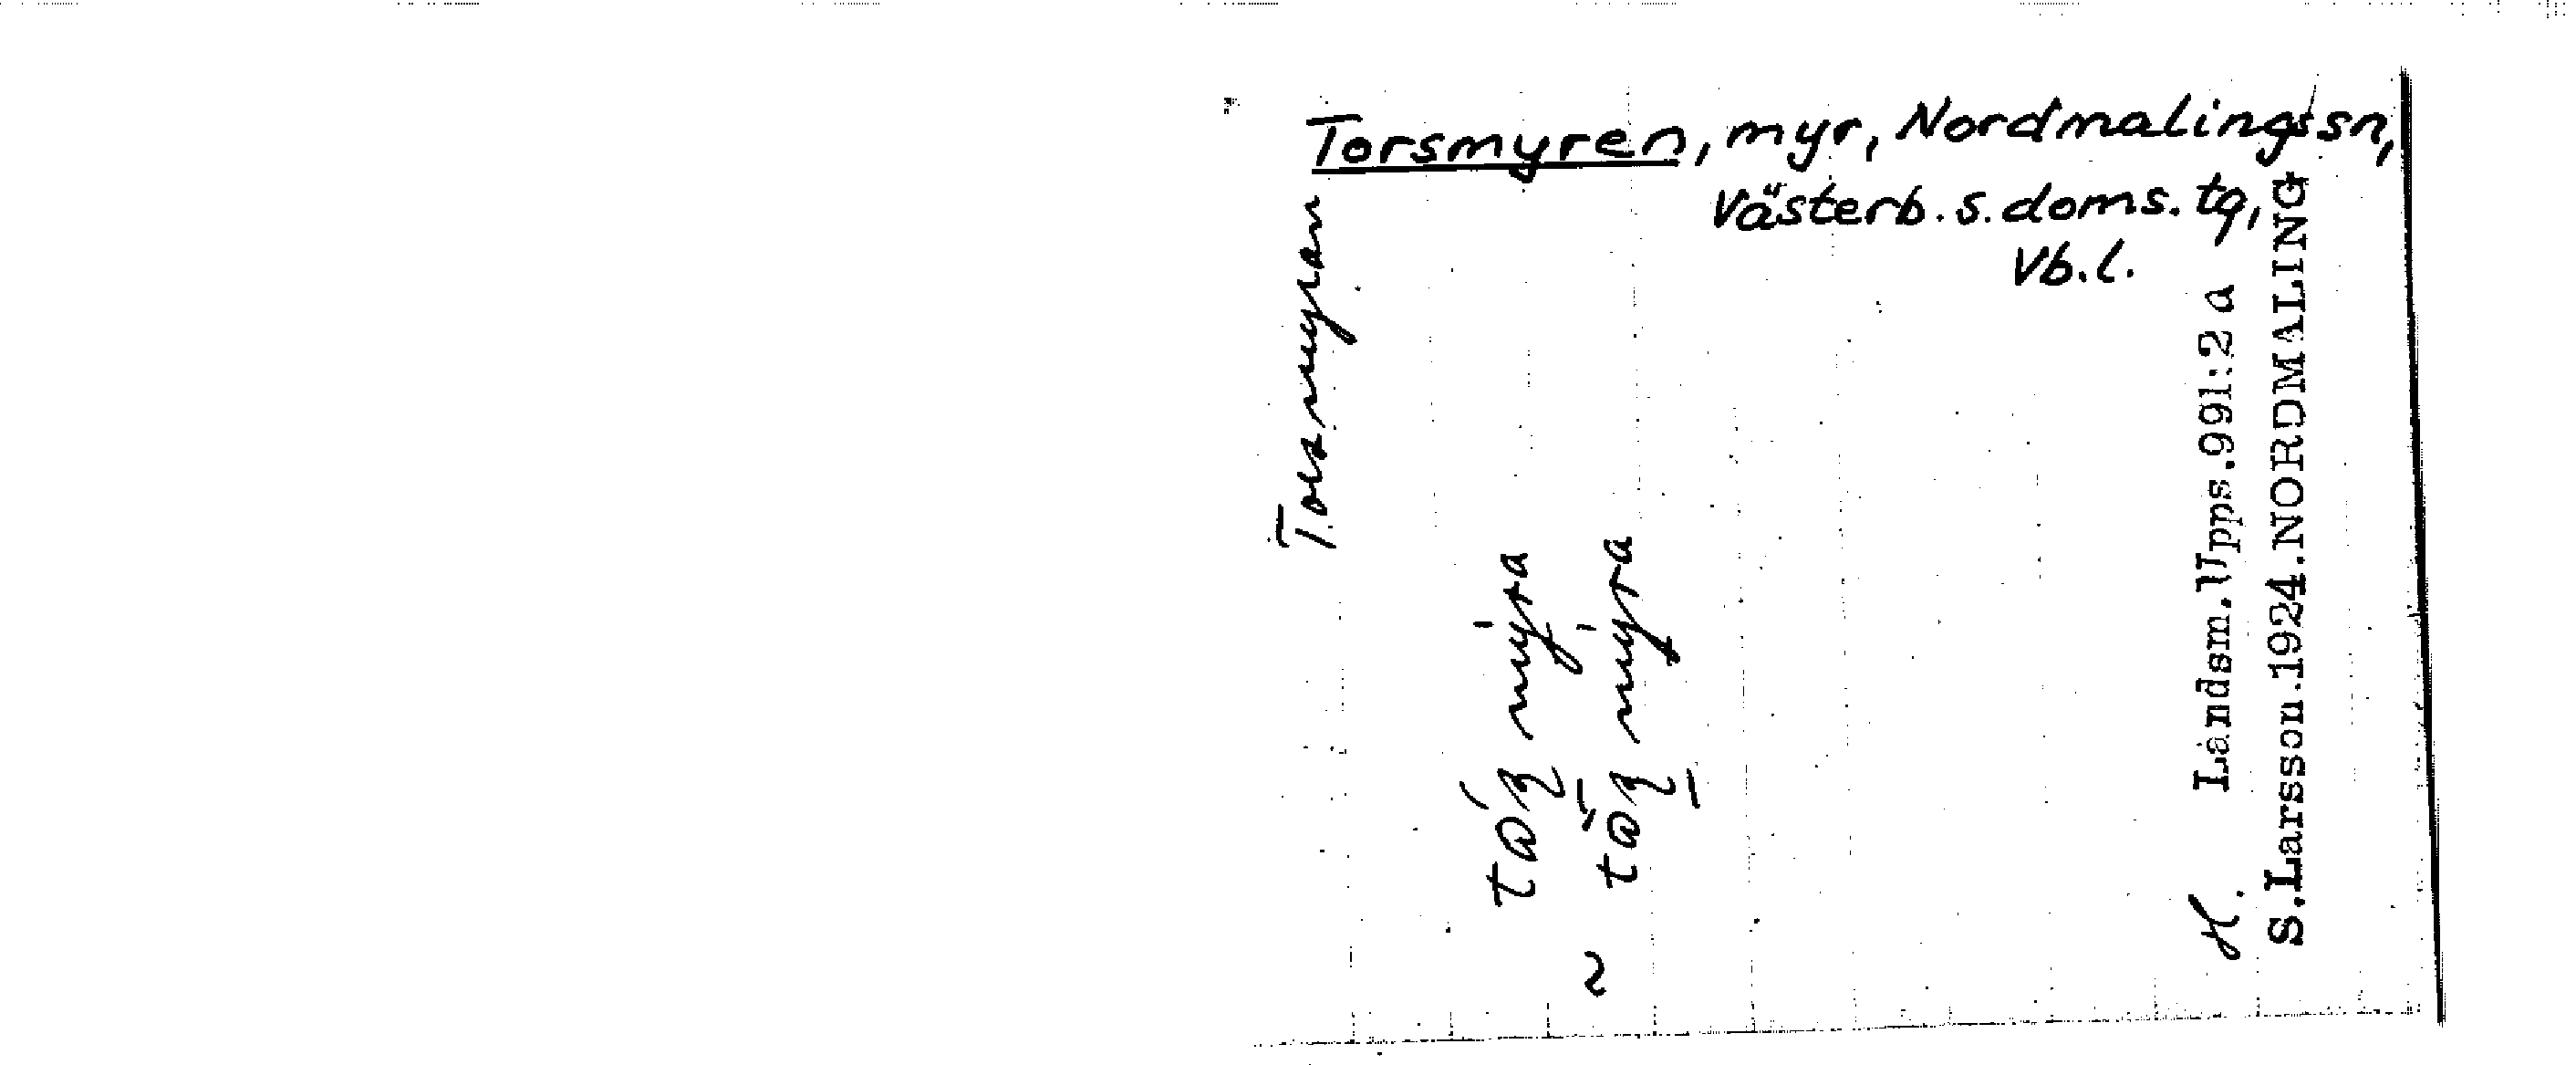 Torsmyren, myr, Nordmalings sn,
Västerb. s. doms. tg,
Vb. l.
Torsmyran
~
H. Landsm. Upps. 991:2 a
S. Larsson. 1924. NORDMALING